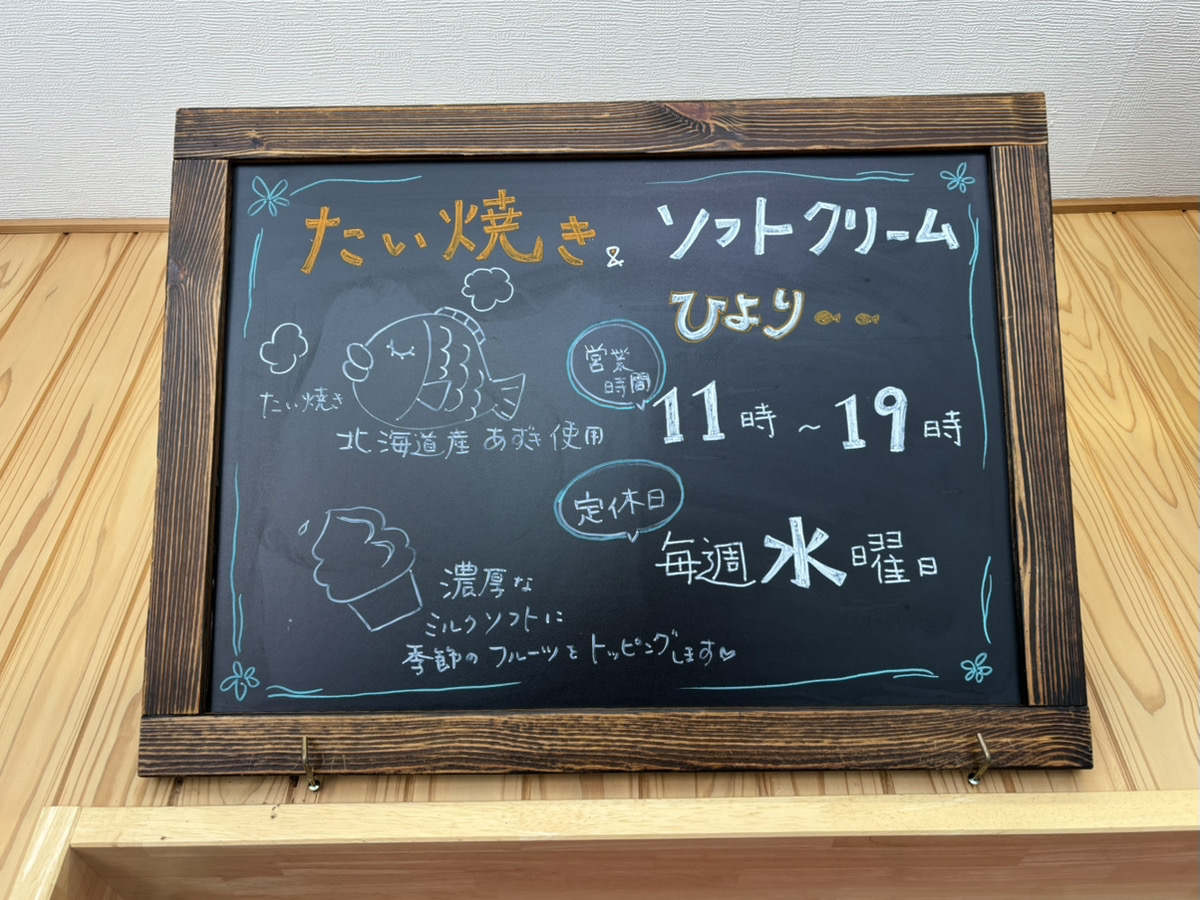 たい焼き & ソフトクリーム
ひより
営業
時間
11時～19時
たい焼き
北海道産 あずき使用
定休日
毎週水曜日
濃厚な
ミルクソフトに
季節のフルーツをトッピングします♡